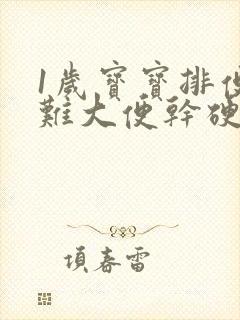 1歲寶寶排便
難大便幹硬
項春雷